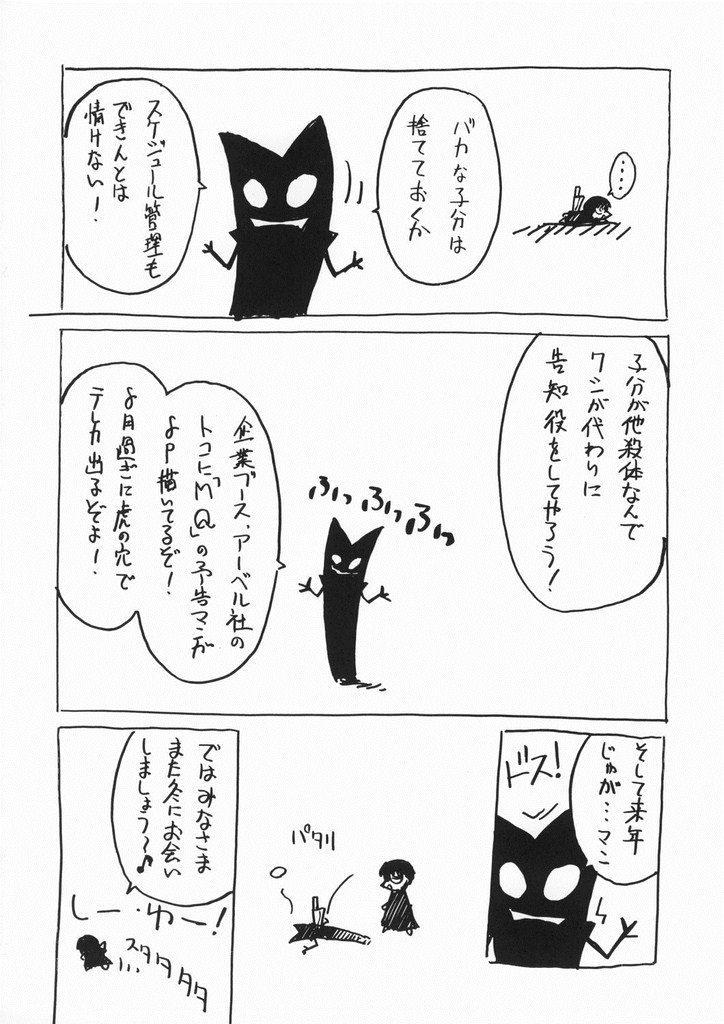 ・・・・
バカな子分は
捨てておくか
スケジュール管理も
できんとは
情けない！
子分が他殺体なんで
ワシが代わりに
告知役をしてやろう！
ふっふっふっ
企業ブース、アーベル社の
トコに「M Q」の予告マンガ
8P描いてるぞ！
8月過ぎに虎の穴で
テレカ出るぞよ！
そして来年
じゃが・・・マン
ドス！
パタリ
ではみなさま
また冬にお会い
しましょう〜♪
しー・ゆー！
スタタタタ